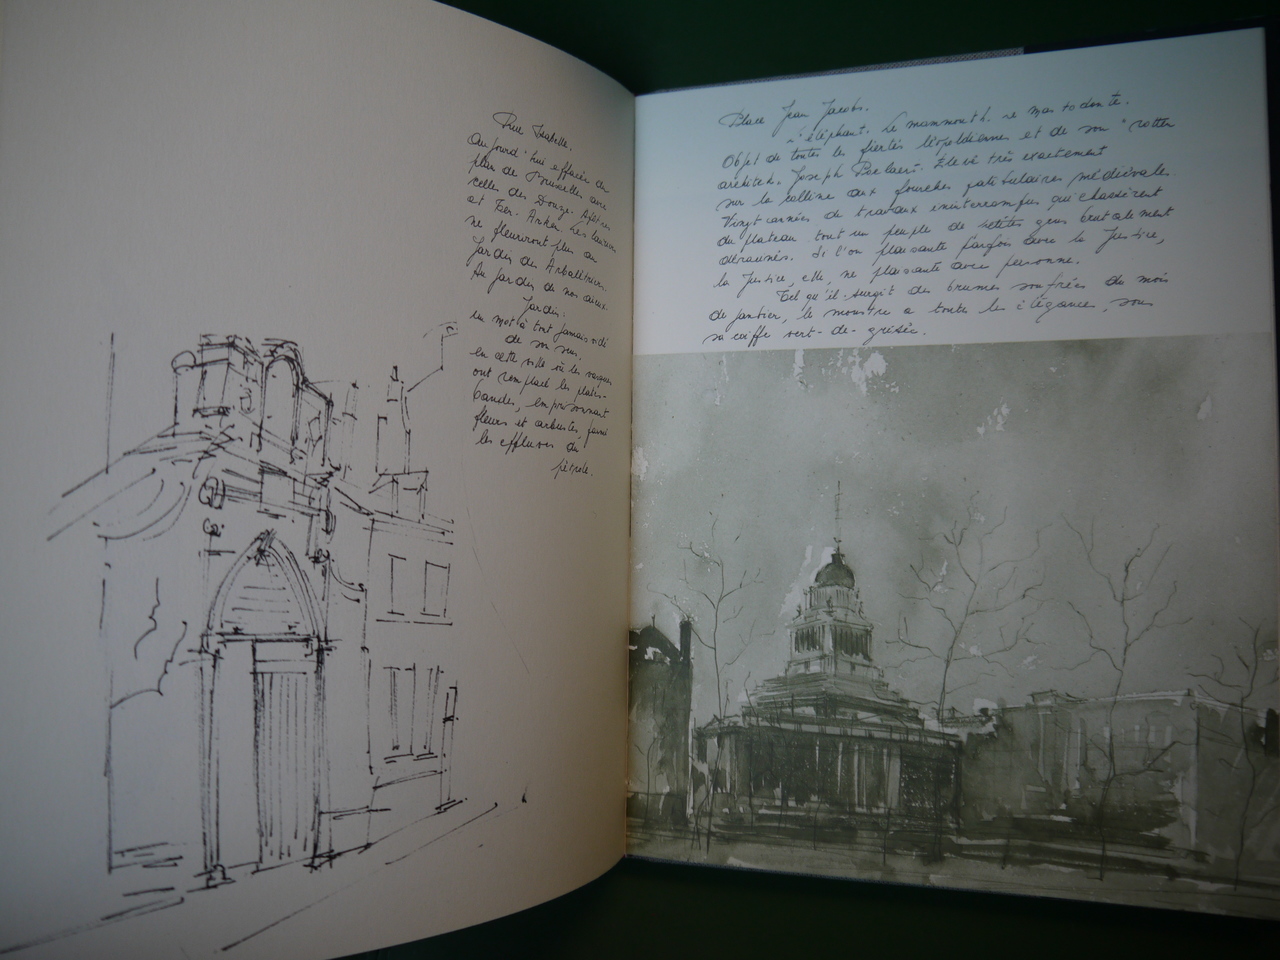 Rue Isabelle.
Aujourd'hui effacée du
plan de Bruxelles avec
celles des Douze Apôtres
et Ter Arken. Les lauriers
ne fleuriront plus au
Jardin des Arbalétriers.
Au jardin de nos aïeux.
Jardin:
un mot à tout jamais vidé
de son sens.
en cette ville où les
ont remplacé les plates-
bandes, empoisonnant
fleurs et arbustes, parmi
les effluves du
pétrole.
Place Jean Jacobs.
L'éléphant. Le mammouth. Le mastodonte.
Objet de toutes les fiertés léopoldiennes et de son "rotten
architek. Joseph Poelaert. Elevé très exactement
sur la colline aux fourches patibulaires médiévales.
Vingt années de travaux ininterrompus qui chassèrent
du plateau tout un peuple de petites gens brutalement
déracinés. Si l'on plaisante parfois avec la Justice,
la Justice, elle, ne plaisante avec personne.
Tel qu'il surgit des brumes soufrées du mois
de janvier, le monstre a toute les élégance, sous
sa coiffe vert-de-grisée.